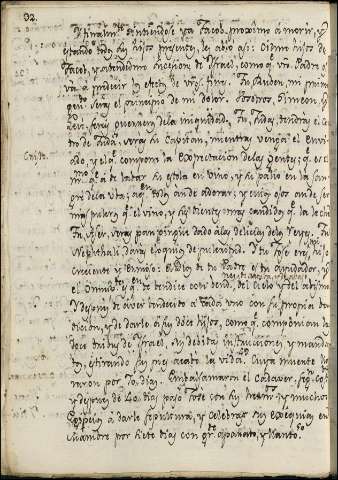 32.
Finalm.te sintiendose ya Jacob, proximo a morir, y
estando todos sus hijos presentes, les dixo asi: Oidme hijos de
Jacob, y atendedme hijos de Israel, como q.e vro Padre os
va a predecir los efectos de vros fines. Tu Ruben, mi primo
gen.to seras el principio de mi dolor. Vosotros Simeon, y
Levi, sereis guerreros de la iniquidad. Tu, Judas, tendras el Ce
tro de Judà, y seras su Capitan, mientras venga el Envi
ado, y el q.e compone la Expectacion de las Gentes; q.e es el
Cristo.
mo. Ha de labar su estola en vino, y su palio en la San
gre de la uba; a q.n todos an de adorar; y cuyos ojos an de ser
mas pulcros q.e el vino, y sus dientes mas candidos q.e la leche.
Tu, Aser, seras pan pingue dado a las delicias de los Reyes. Tu,
Nephthali daras eloquio de pulcritud. Y tu Jose eres hijo
creciente y hermoso: el Dios de tu Padre es tu ayudador, y
el Omnip.te q.e te bendice con bend. del Cielo y del abismo
Y despues de aver bendecido a cada uno con su propia ben
dicion, y de darle a sus doce hijos, como q.e componian las
doce tribus de Israel, sus debidas instrucciones y manda
tos, estirando sus pies acabò la vida. Cuya muerte llo
raron por 70. dias. Embalsamaron el Cadaver, seg.n
y despues de 40. dias pasò Jose con sus herm.s y muchos
Egypcios a darle sepultura, y celebrar sus exequias en
por siete dias con gr.de aparato, y llanto.